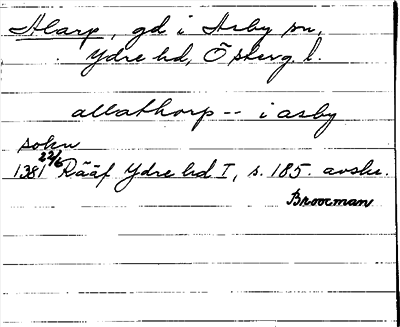 Alarp, gd i Asby sn,
Ydre hd, Österg. l.
allathorp -- i asby
sokn
1381 22/6 Rääf Ydre hd I, s. 185. avskr.
Broocman